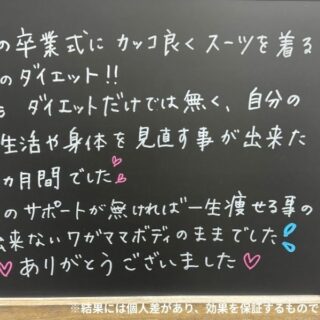 の卒業式に カッコ良く スーツを着る
のダイエット!!
ダイエットだけでは無く、自分の
生活や身体を見直す事が出来た
カ月間でした♡
のサポートが無ければ一生痩せる事の
出来ないワガママボディのままでした
♡ありがとうございました♡
※結果には個人差があり、効果を保証するもので